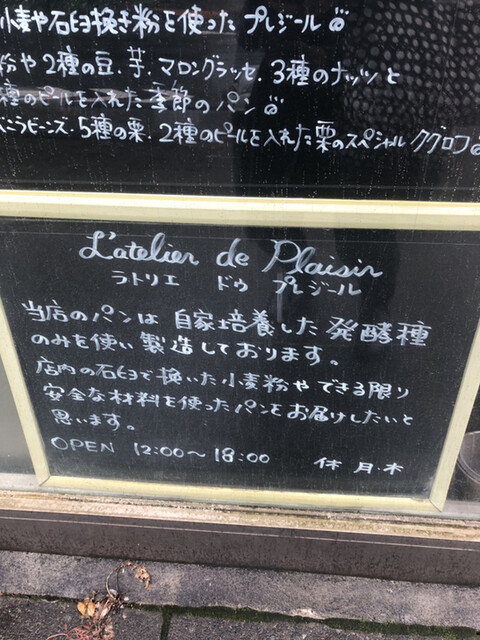 小麦や石臼挽き粉を使ったプレジール
粉や2種の豆、芋、マロングラッセ、3種のナッツと
種のピールを入れた季節のパン
ビーンズ・5種の栗、2種のピールを入れた栗のスペシャルクグロフ
L'atelier de Plaisir
ラトリエ ドゥ プレジール
当店のパンは自家培養した発酵種
のみを使い製造しております。
店内の石臼で挽いた小麦粉やできる限り
安全な材料を使ったパンをお届けしたいと
思います。
OPEN 12:00〜18:00 休 月・木